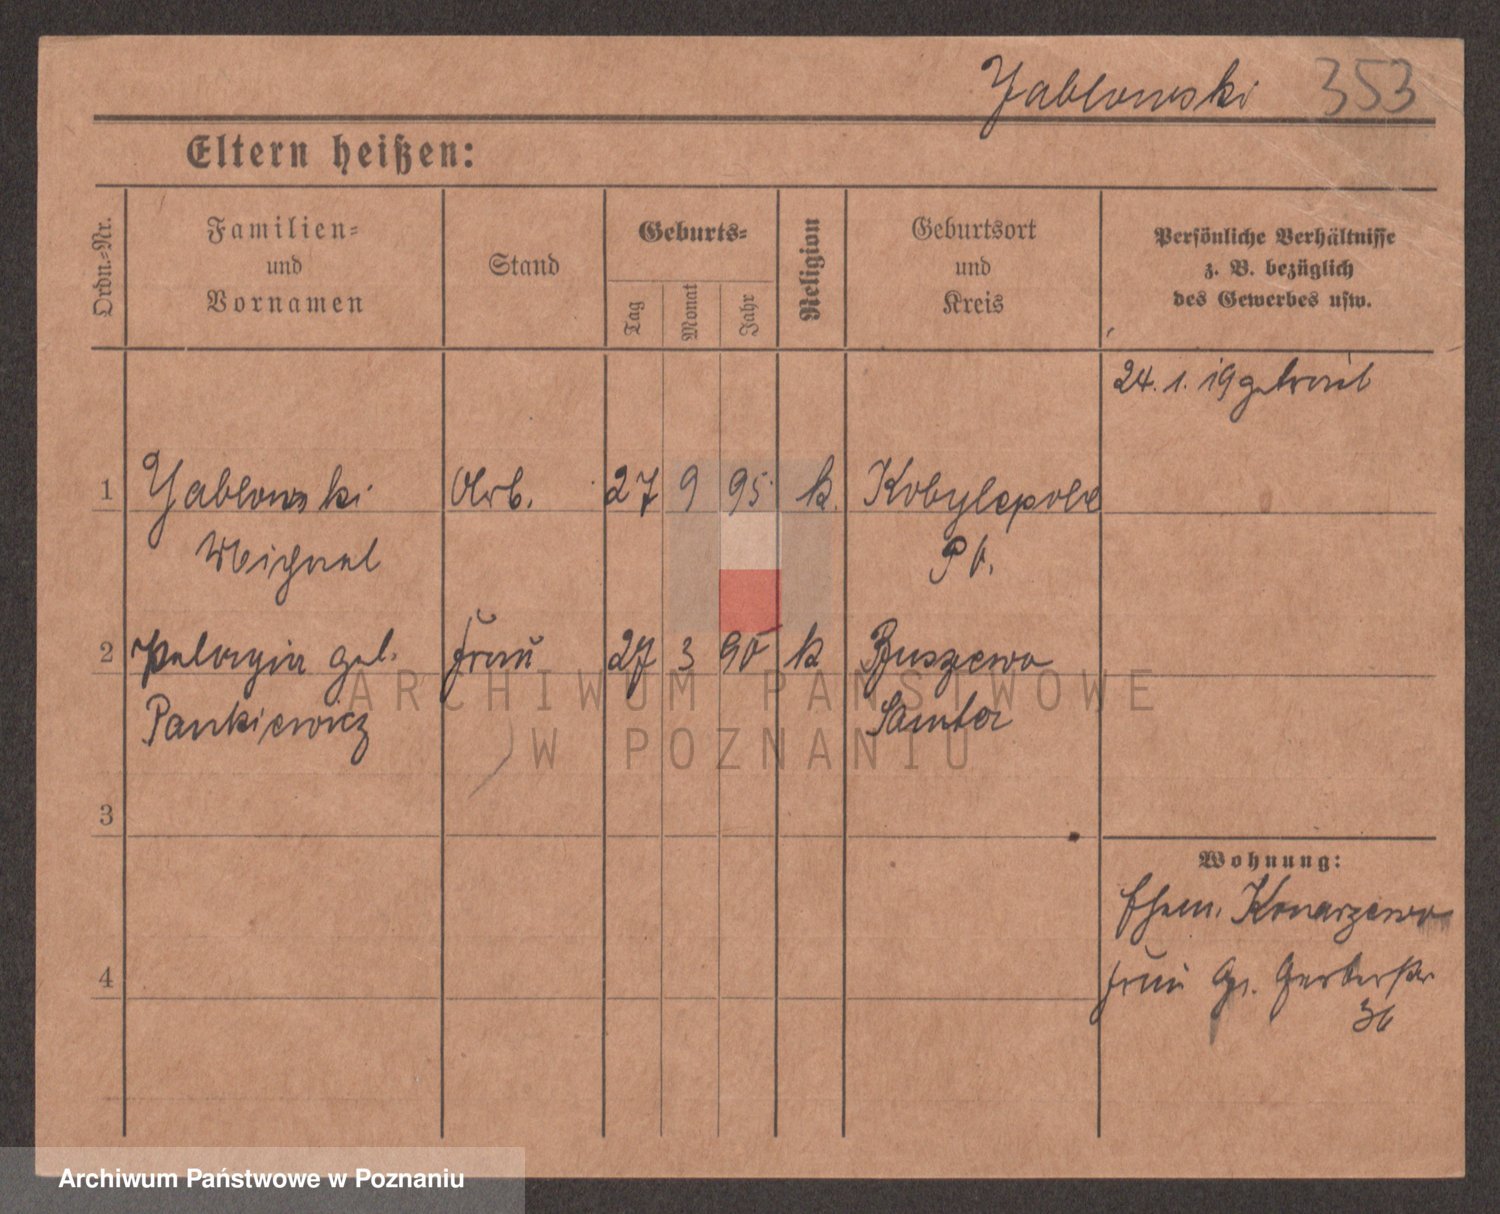 Jablowski 353
Eltern heißen:
Ordn.-Nr.
Familien-
und
Vornamen
Stand
Geburts-
Tag
Monat
Jahr
Religion
Geburtsort
und
Kreis
Persönliche Verhältnisse
z. B. bezüglich
des Gewerbes usw.
24. 1. 19 getraut
1 Jablowski Arb. 27 9 95 k. Kobylepole
Michael P O.
2 Pelagia geb. Frau 27 3 90 k Buszewo
Pankiewicz Samter
3
Wohnung:
Ehem. Konarzewo
4
Frau Gr. Gerberstr
36
ARCHIWUM PAŃSTWOWE
W POZNANIU
Archiwum Państwowe w Poznaniu